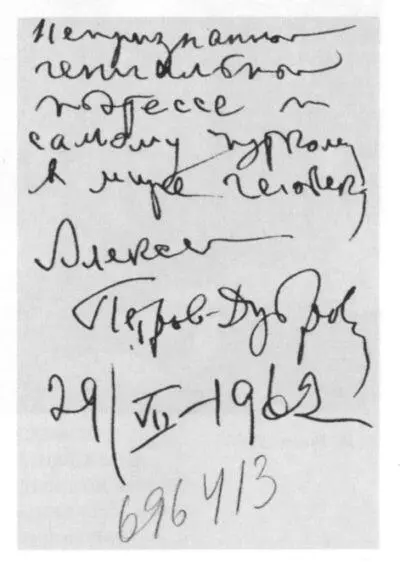 Непризнанной
гениальной
поэтессе и
самому чуткому
в мире человеку
Алексей
Петров-Дубров
29/VII-1962
696413